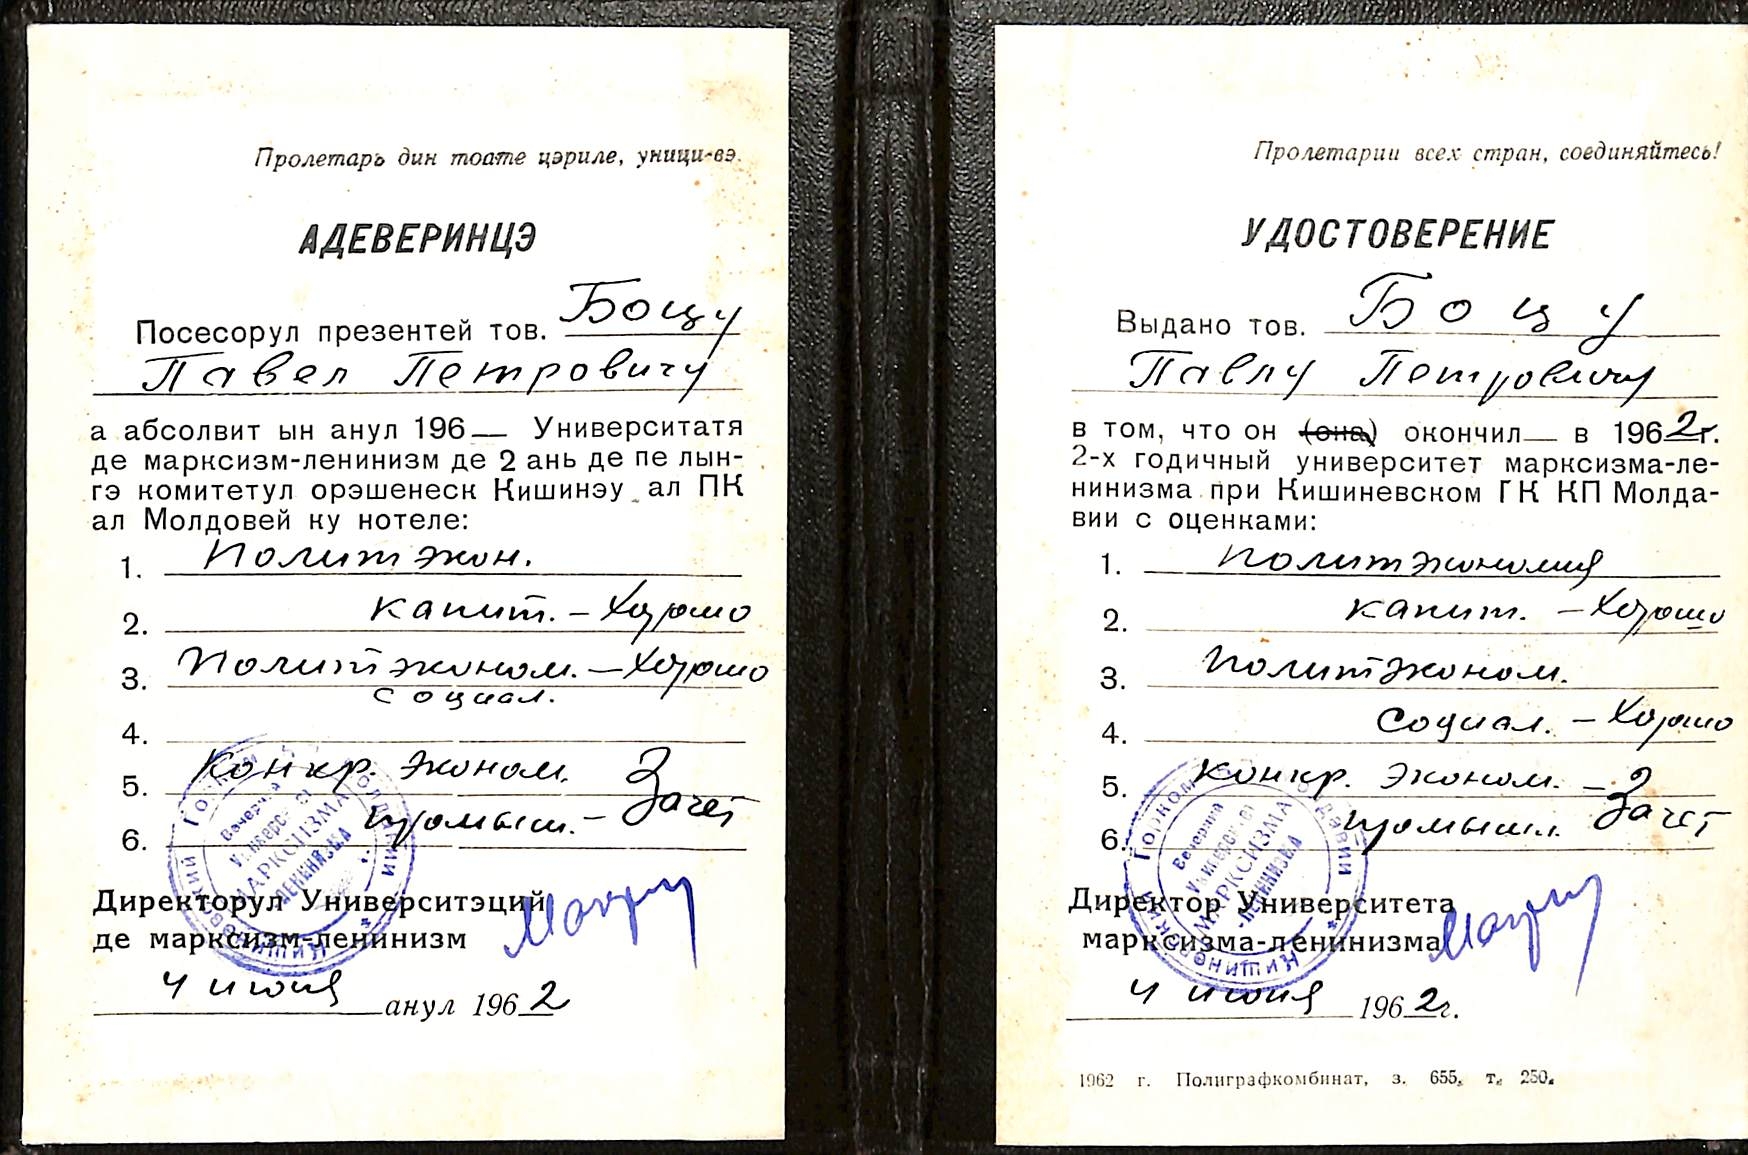 Пролетарь дин тоате цэриле, уници-вэ.
АДЕВЕРИНЦЭ
Посесорул презентей тов. Боцу
Павел Петровичу
а абсолвит ын анул 196__ Университатя
де марксизм-ленинизм де 2 ань де пе лын-
гэ комитетул орэшенеск Кишинэу ал ПК
ал Молдовей ку нотеле:
1. Политэкон.
2. капит. – Хорошо
3. Политэконом. – Хорошо
социал.
4.
5. Конкр. эконом.
6. промыш. – Зачет
Директорул Университэций
де марксизм-ленинизм
4 июня анул 1962
Горком Молдавии Кишиневский
Вечерний
Университет
МАРКСИЗМА
ЛЕНИНИЗМА
Пролетарии всех стран, соединяйтесь!
УДОСТОВЕРЕНИЕ
Выдано тов. Боцу
Павлу Петровичу
в том, что он (она) окончил__ в 1962 г.
2-х годичный университет марксизма-ле-
нинизма при Кишиневском ГК КП Молда-
вии с оценками:
1. Политэкономия
2. капит. – Хорошо
3. Политэконом.
4. Социал. – Хорошо
5. Конкр. эконом. –
6. промышл. Зачет
Директор Университета
марксизма-ленинизма
4 июня 1962 г.
Горком Молдавии Кишиневский
Вечерний
Университет
МАРКСИЗМА
-ЛЕНИНИЗМА
1962 г. Полиграфкомбинат, з. 655, т. 250.